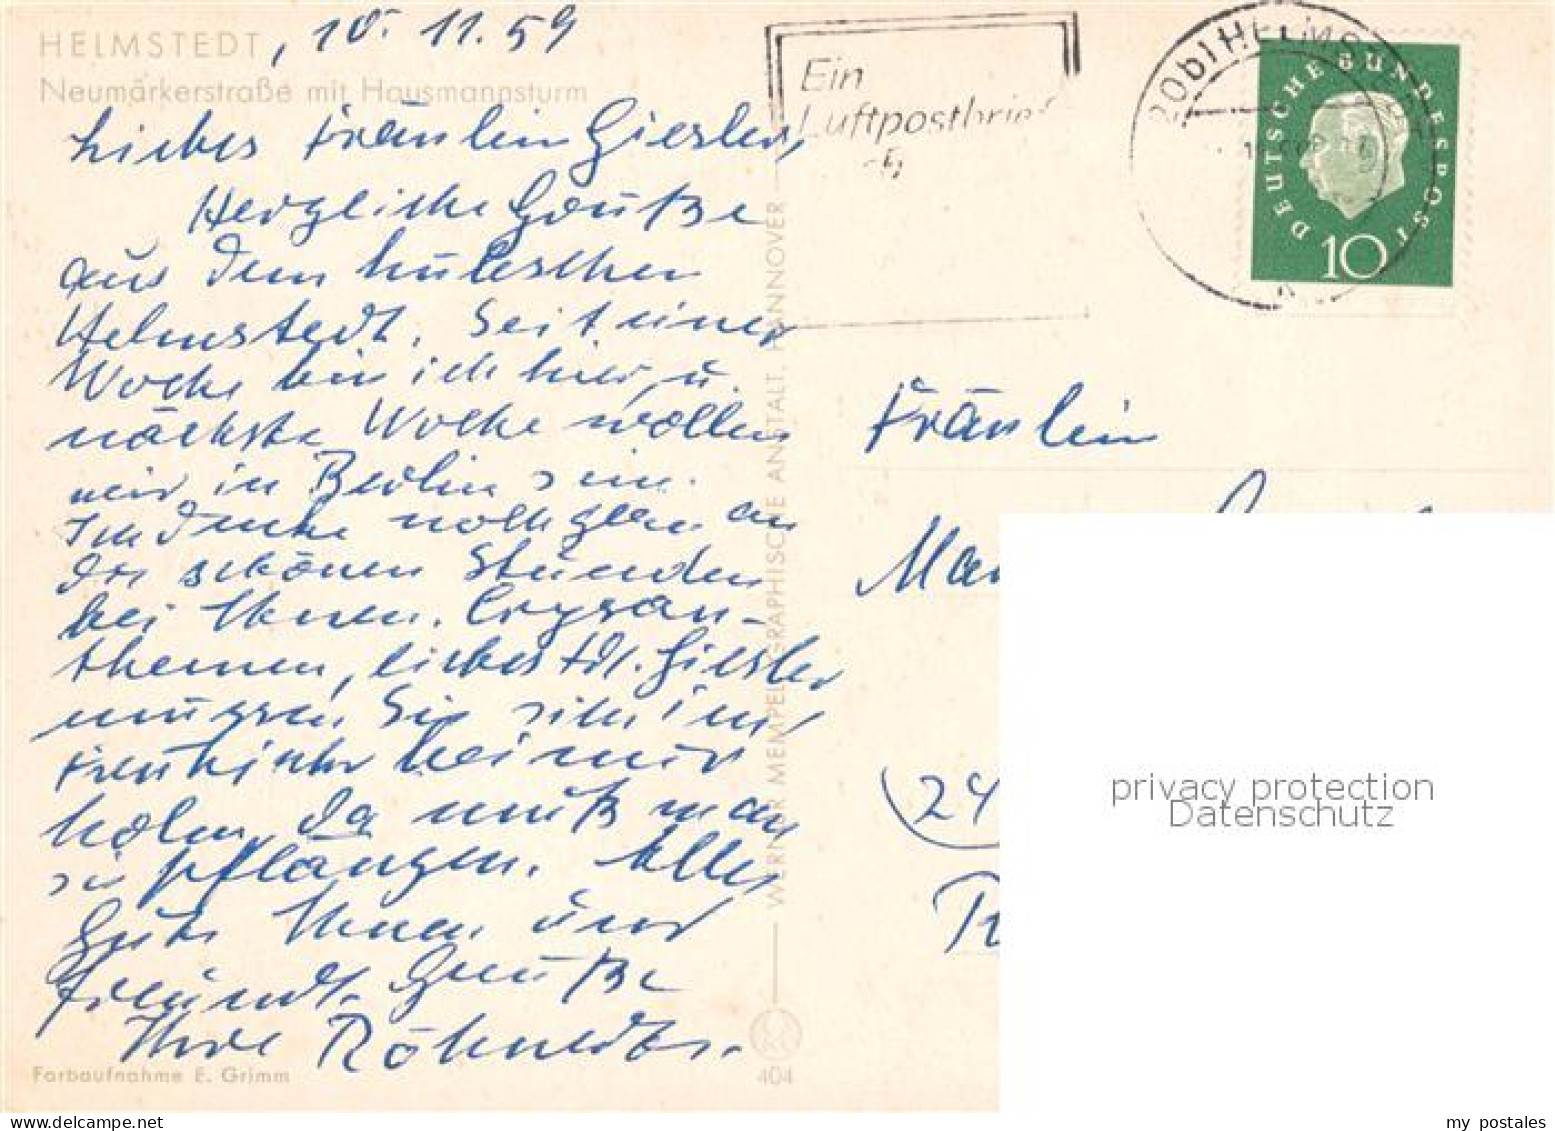 HELMSTEDT, 10. 11. 59
Neumärkerstraße mit Hausmannsturm
Liebes Fräulein Giesler,
Herzliche Grüße
aus dem
Helmstedt. Seit einer
Woche bin ich hier, u.
nächste Woche wollen
wir in Berlin sein.
Ich denke noch gern an
die schönen Stunden
bei Ihnen. Crysan-
themen, liebes Frl. Giesler
müssen Sie sich im
bei mir
holen, da muß man
sie pflanzen. Alles
Gute Ihnen und
freundl. Grüße
Ihre
Farbaufnahme E. Grimm
WERNER MEMPEL, GRAPHISCHE ANSTALT, HANNOVER
404
Ein
Luftpostbrief
20b HELMSTEDT
DEUTSCHE BUNDESPOST
10
Fräulein
(24
privacy protection
Datenschutz
my postales